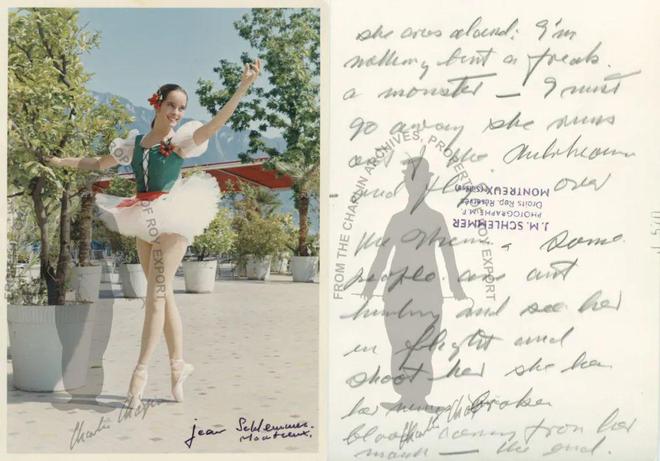 PROPERTY OF ROY EXPORT
Charlie Chaplin
Jean Schlemmer.
Montreux.
she cries aloud: I'm
nothing but a freak
a monster — I must
go away she runs
out of the
and flys over
the Some
people are out
hunting and see her
in flight and
shoot her she has
her wing broken
blood coming from her
mouth — the end.
J. M. SCHLEMMER
PHOTOGRAPHE M.F.
Droits Rep. Réservés
MONTREUX (Suisse)
FROM THE CHAPLIN ARCHIVES, PROPERTY OF ROY EXPORT
Charlie Chaplin